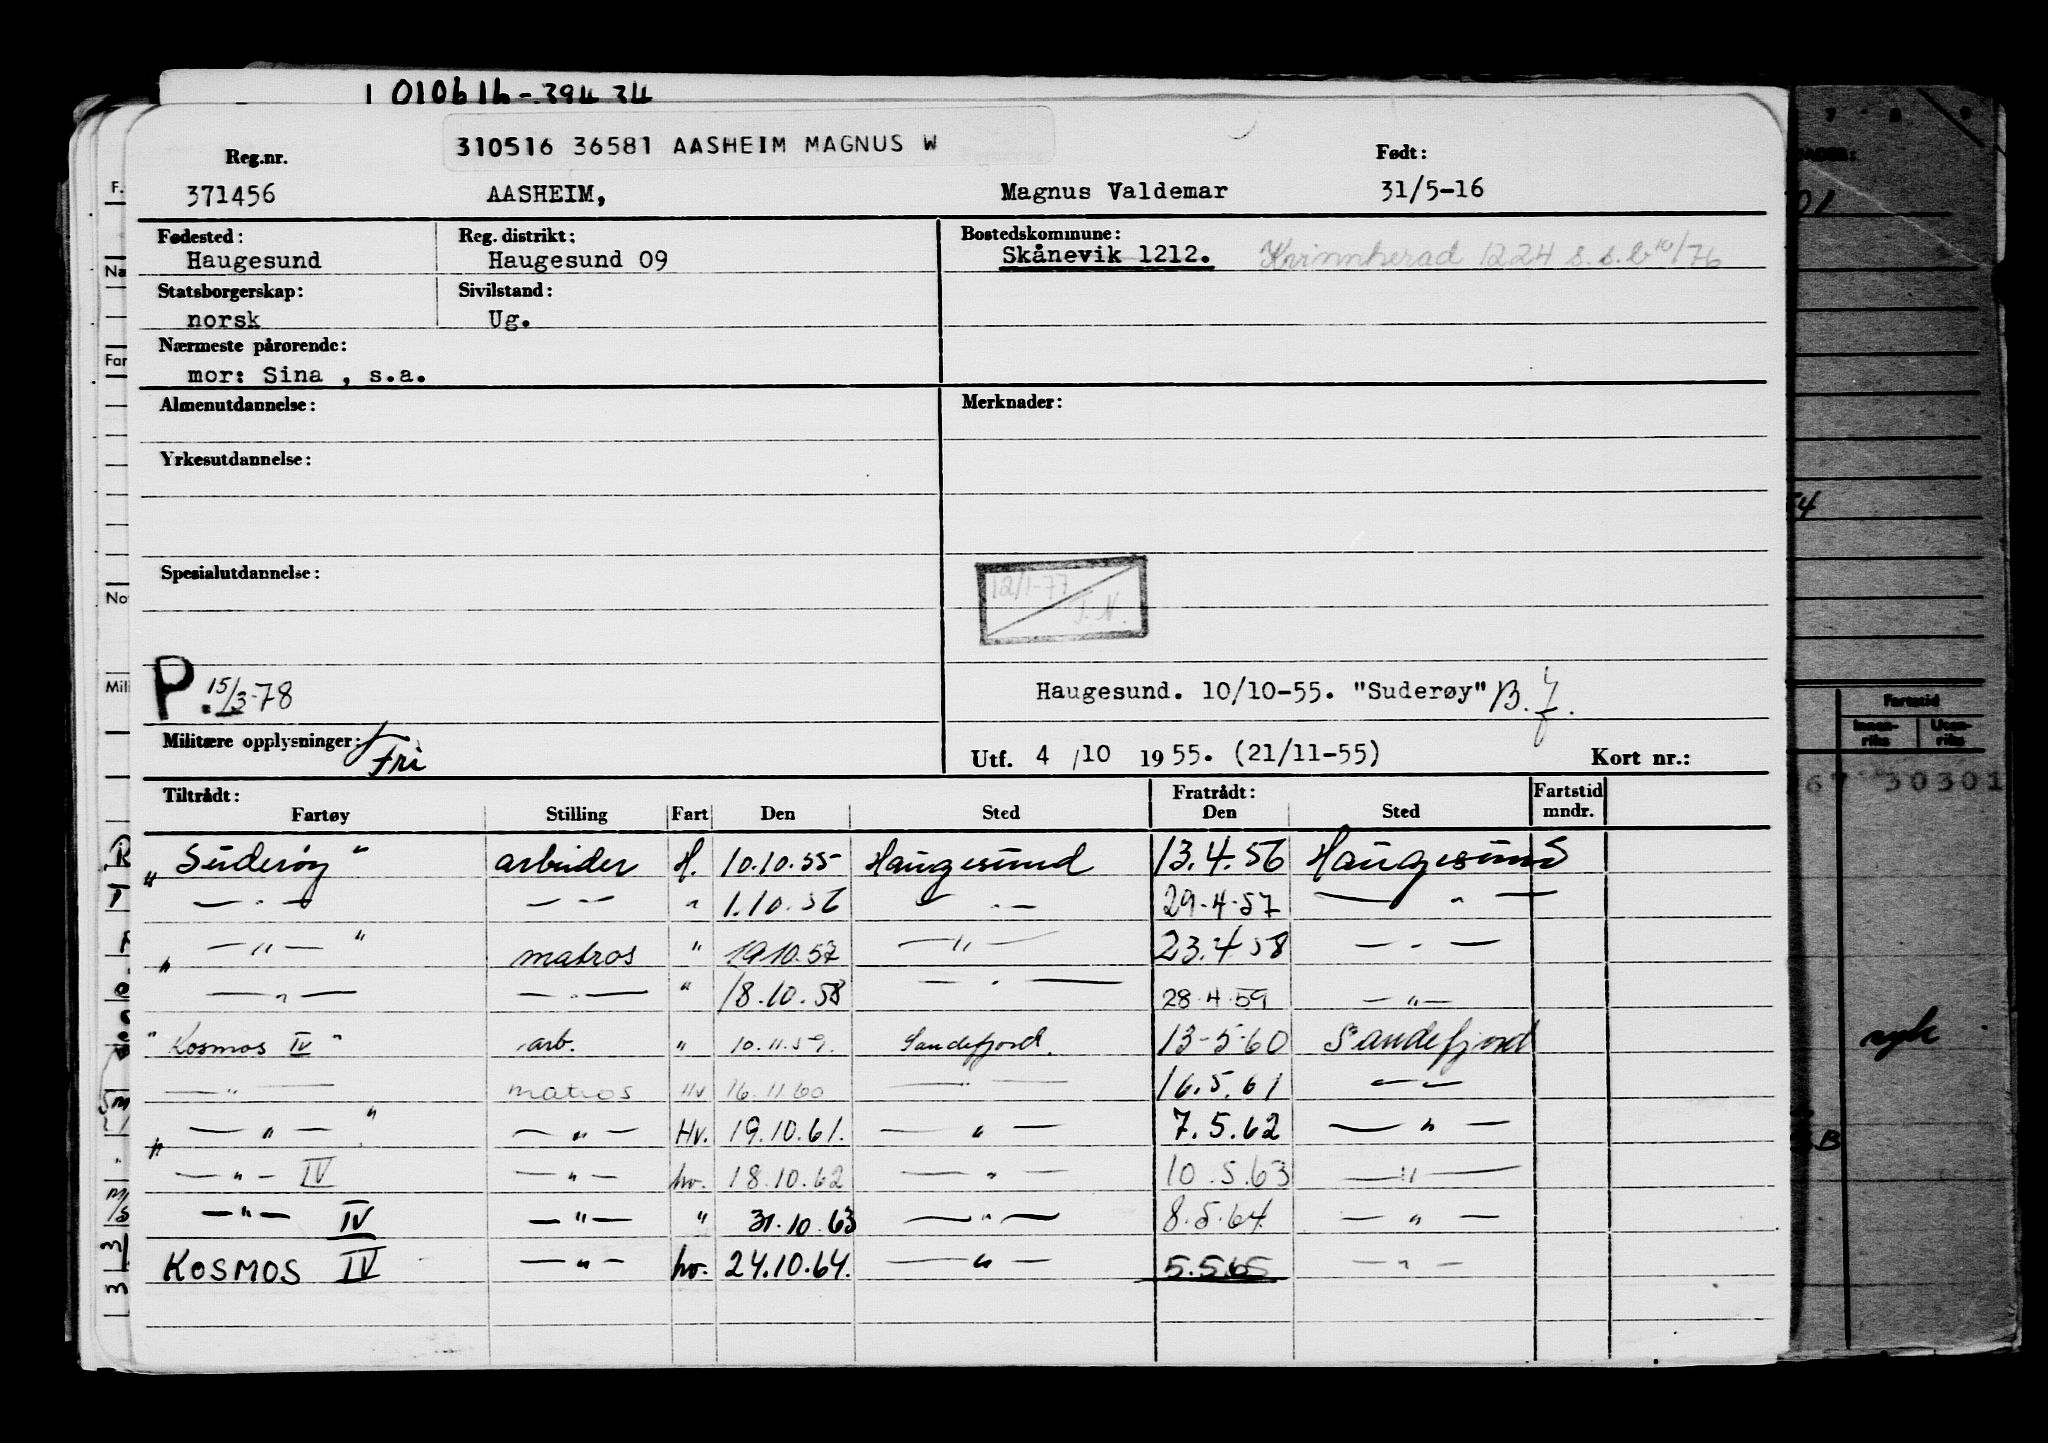 1 010616-39434
310516 36581 AASHEIM MAGNUS W
Reg.nr. Født:
371456 AASHEIM, Magnus Valdemar 31/5-16
Fødested: Reg. distrikt: Bostedskommune:
Haugesund Haugesund 09 Skånevik 1212. Kvinnherad 1224 s.s.b 10/76
Statsborgerskap: Sivilstand:
norsk Ug.
Nærmeste pårørende:
mor: Sina , s.a.
Almenutdannelse: Merknader:
Yrkesutdannelse:
Spesialutdannelse:
12/1-77
T.N.
P. 15/3-78
Haugesund. 10/10-55. "Suderøy" B.f.
Militære opplysninger: Fri
Utf. 4 /10 1955. (21/11-55) Kort nr.:
Tiltrådt: Fratrådt: Fartstid
Fartøy Stilling Fart Den Sted Den Sted mndr.
"Suderøy" arbeider H. 10.10.55 Haugesund 13.4.56 Haugesund
— " — — " — " 1.10.56 — " — 29.4.57 — " —
" — " — " matros " 19.10.57 — " — 23.4.58 — " —
— " — — " — " 18.10.58 — " — 28.4.59 — " —
"Kosmos IV" arb. " 10.11.59. Sandefjord. 13-5-60 Sandefjord
— " — matros Hv 16.11.60 — " — 16.5.61 — " —
" — " — " — " — Hv. 19.10.61. — " — 7.5.62 — " —
— " — IV — " — hv. 18.10.62 — " — 10.5.63 — " —
— " — IV — " — " 31.10.63 — " — 8.5.64 — " —
KOSMOS IV — " — hv. 24.10.64. — " — 5.5.65 — " —